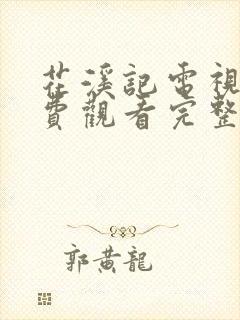 花溪記電視
費觀看完整
郭黃龍